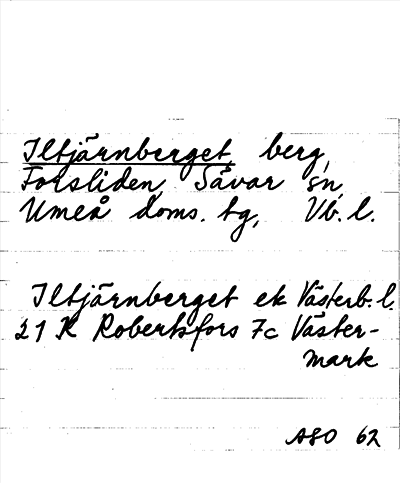 Iltjärnberget, berg,
Forsliden, Sävar sn,
Umeå doms. tg, Vb. l.
Iltjärnberget ek Västerb. l.
21 K Robertsfors 7c Väster-
mark
ASO 62